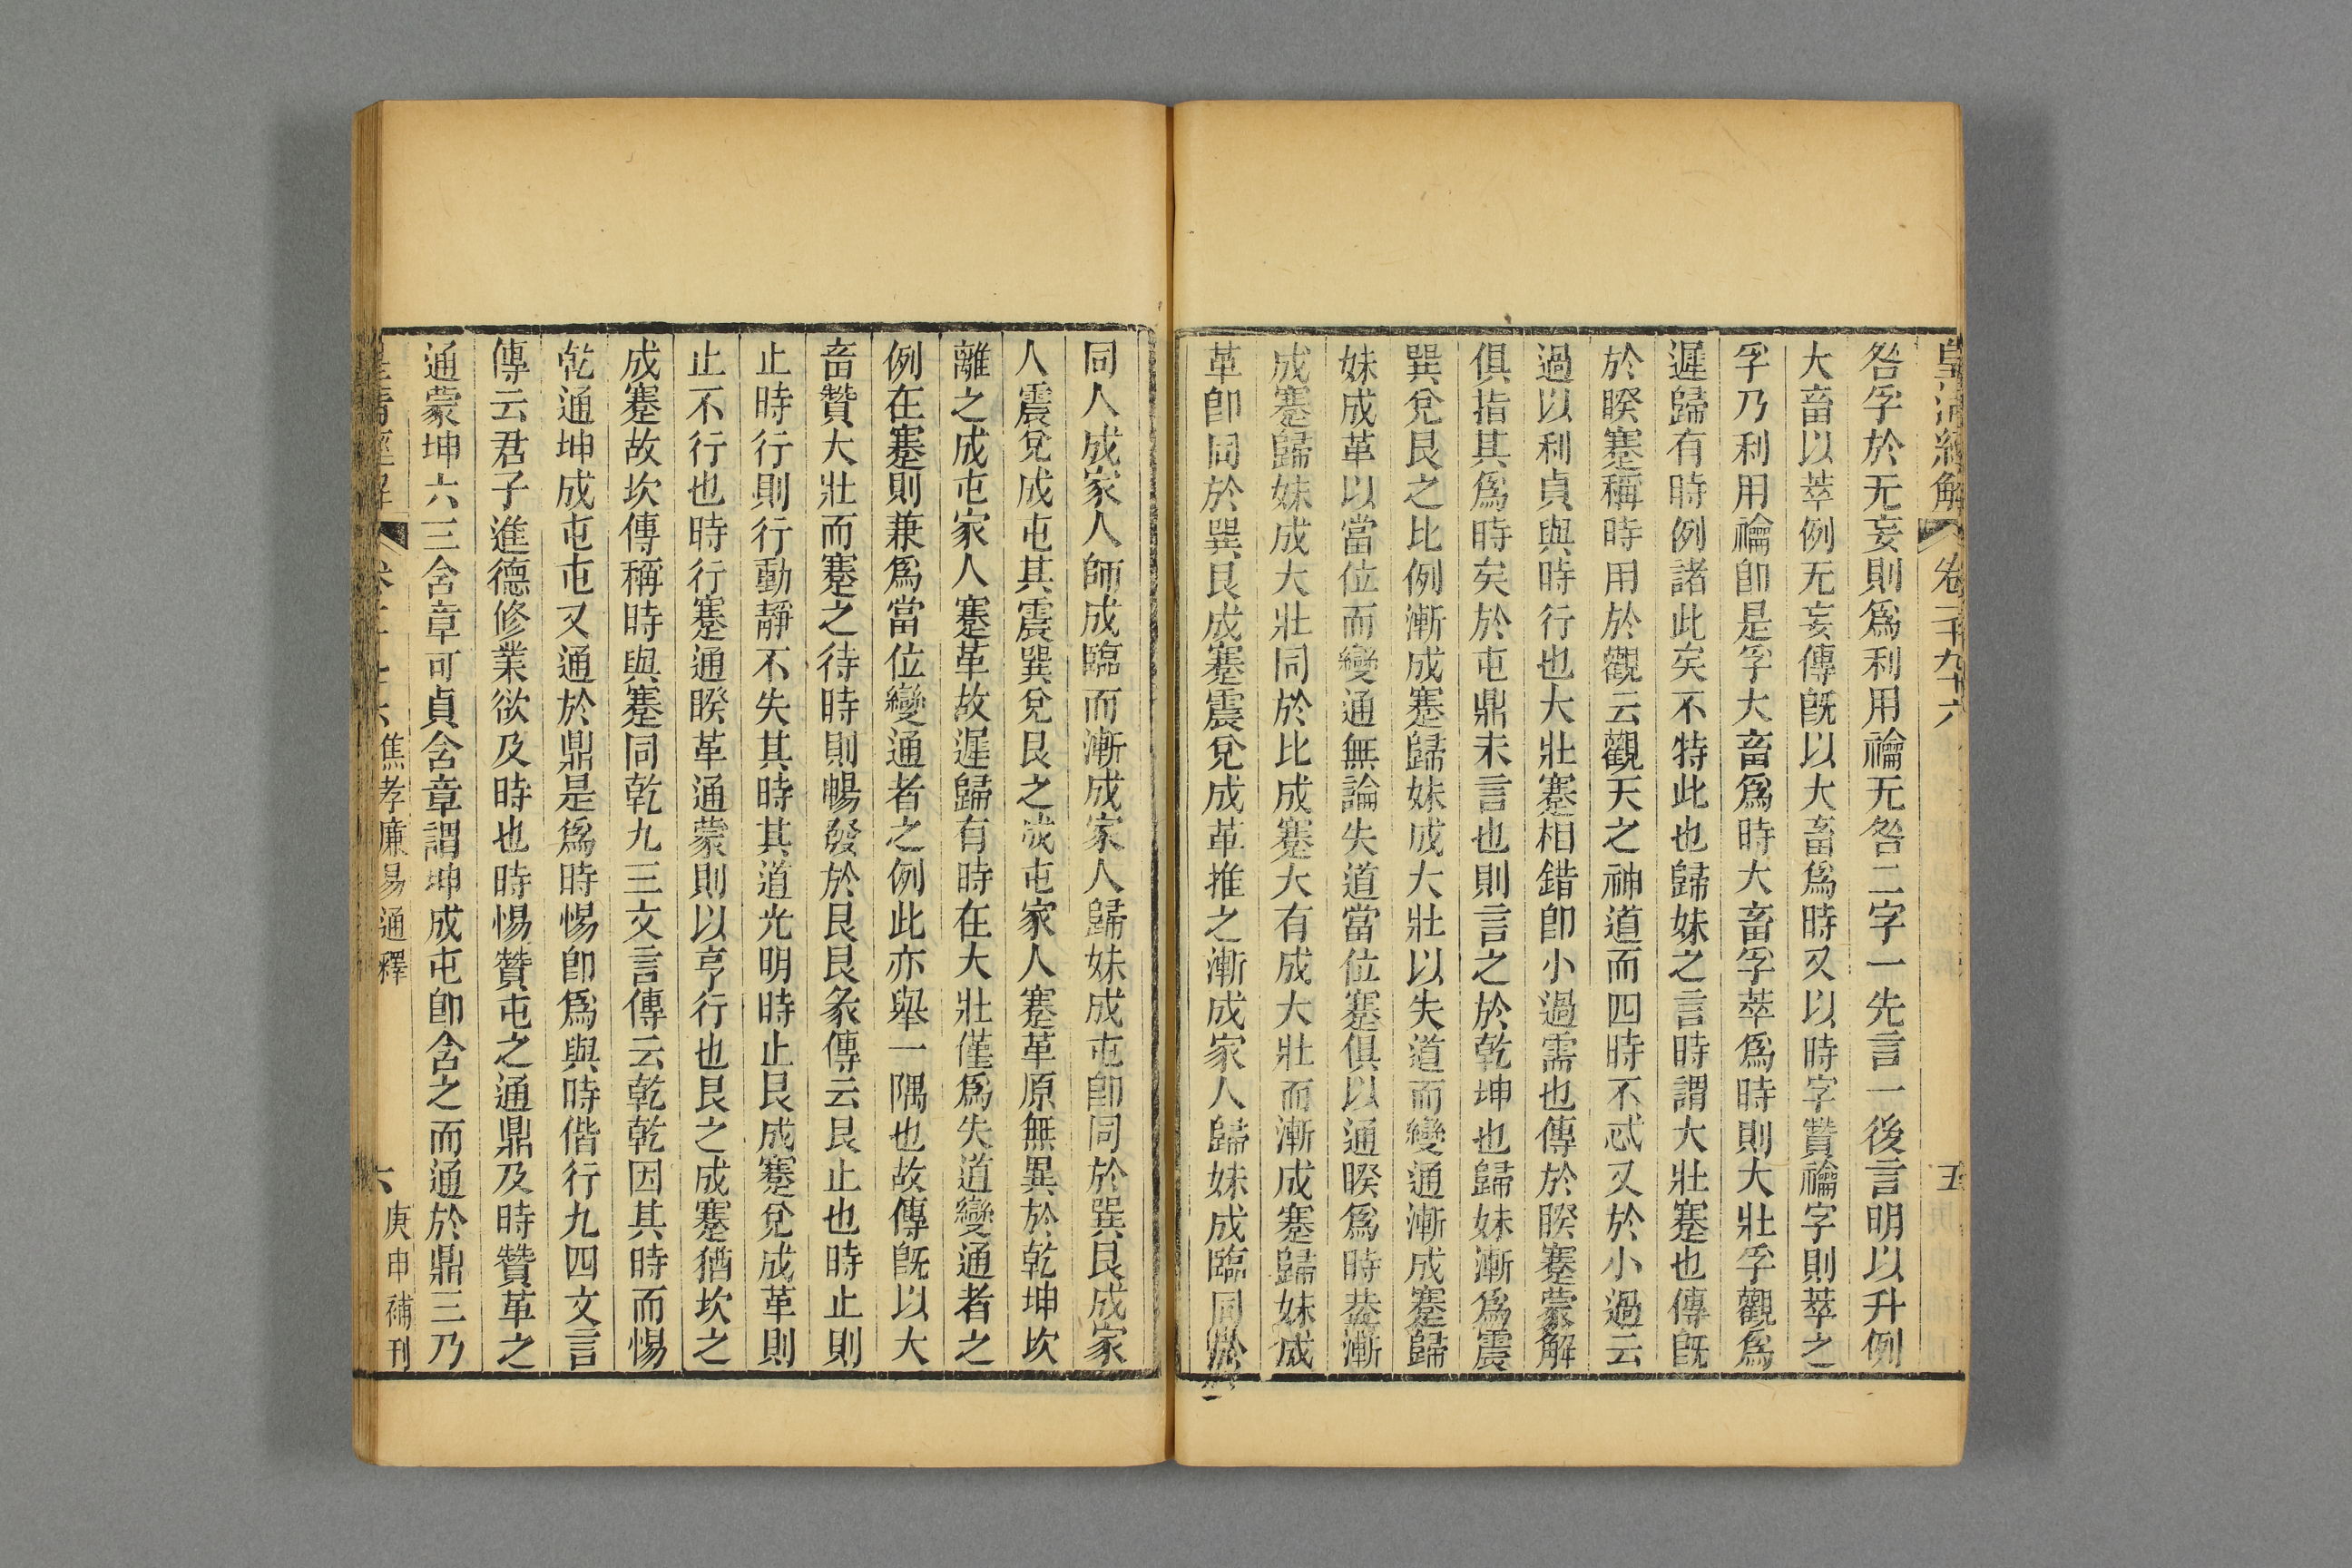 皇清經解 卷一千九十六 五
咎字於无妄則爲利用禴无咎二字一先言一後言明以升例
大畜以萃例无妄傳旣以大畜爲時又以時字贊禴字則萃之
孚乃利用禴卽是孚大畜爲時大畜孚萃爲時則大壯孚觀爲
遲歸有時例諸此矣不特此也歸妹之言時謂大壯蹇也傳旣
於睽蹇稱時用於觀云觀天之神道而四時不忒又於小過云
過以利貞與時行也大壯蹇相錯卽小過需也傳於睽蹇蒙解
俱指其爲時矣於屯鼎未言也則言之於乾坤也歸妹漸爲震
巽兌艮之比例漸成蹇歸妹成大壯以失道而變通漸成蹇歸
妹成革以當位而變通無論失道當位蹇俱以通睽爲時葢漸
成蹇歸妹成大壯同於比成蹇大有成大壯而漸成蹇歸妹成
革卽同於巽艮成蹇震兌成革推之漸成家人歸妹成臨同於
同人成家人師成臨而漸成家人歸妹成屯卽同於巽艮成家
人震兌成屯其震巽兌艮之成屯家人蹇革原無異於乾坤坎
離之成屯家人蹇革故遲歸有時在大壯僅爲失道變通者之
例在蹇則兼爲當位變通者之例此亦舉一隅也故傳旣以大
畜贊大壯而蹇之待時則暢發於艮艮彖傳云艮止也時止則
止時行則行動靜不失其時其道光明時止艮成蹇兌成革則
止不行也時行蹇通睽革通蒙則以亨行也艮之成蹇猶坎之
成蹇故坎傳稱時與蹇同乾九三文言傳云乾乾因其時而惕
乾通坤成屯屯又通於鼎是爲時惕卽爲與時偕行九四文言
傳云君子進德修業欲及時也時惕贊屯之通鼎及時贊革之
通蒙坤六三含章可貞含章謂坤成屯卽含之而通於鼎三乃
皇清經解 焦孝廉易通釋 六 庚申補刊